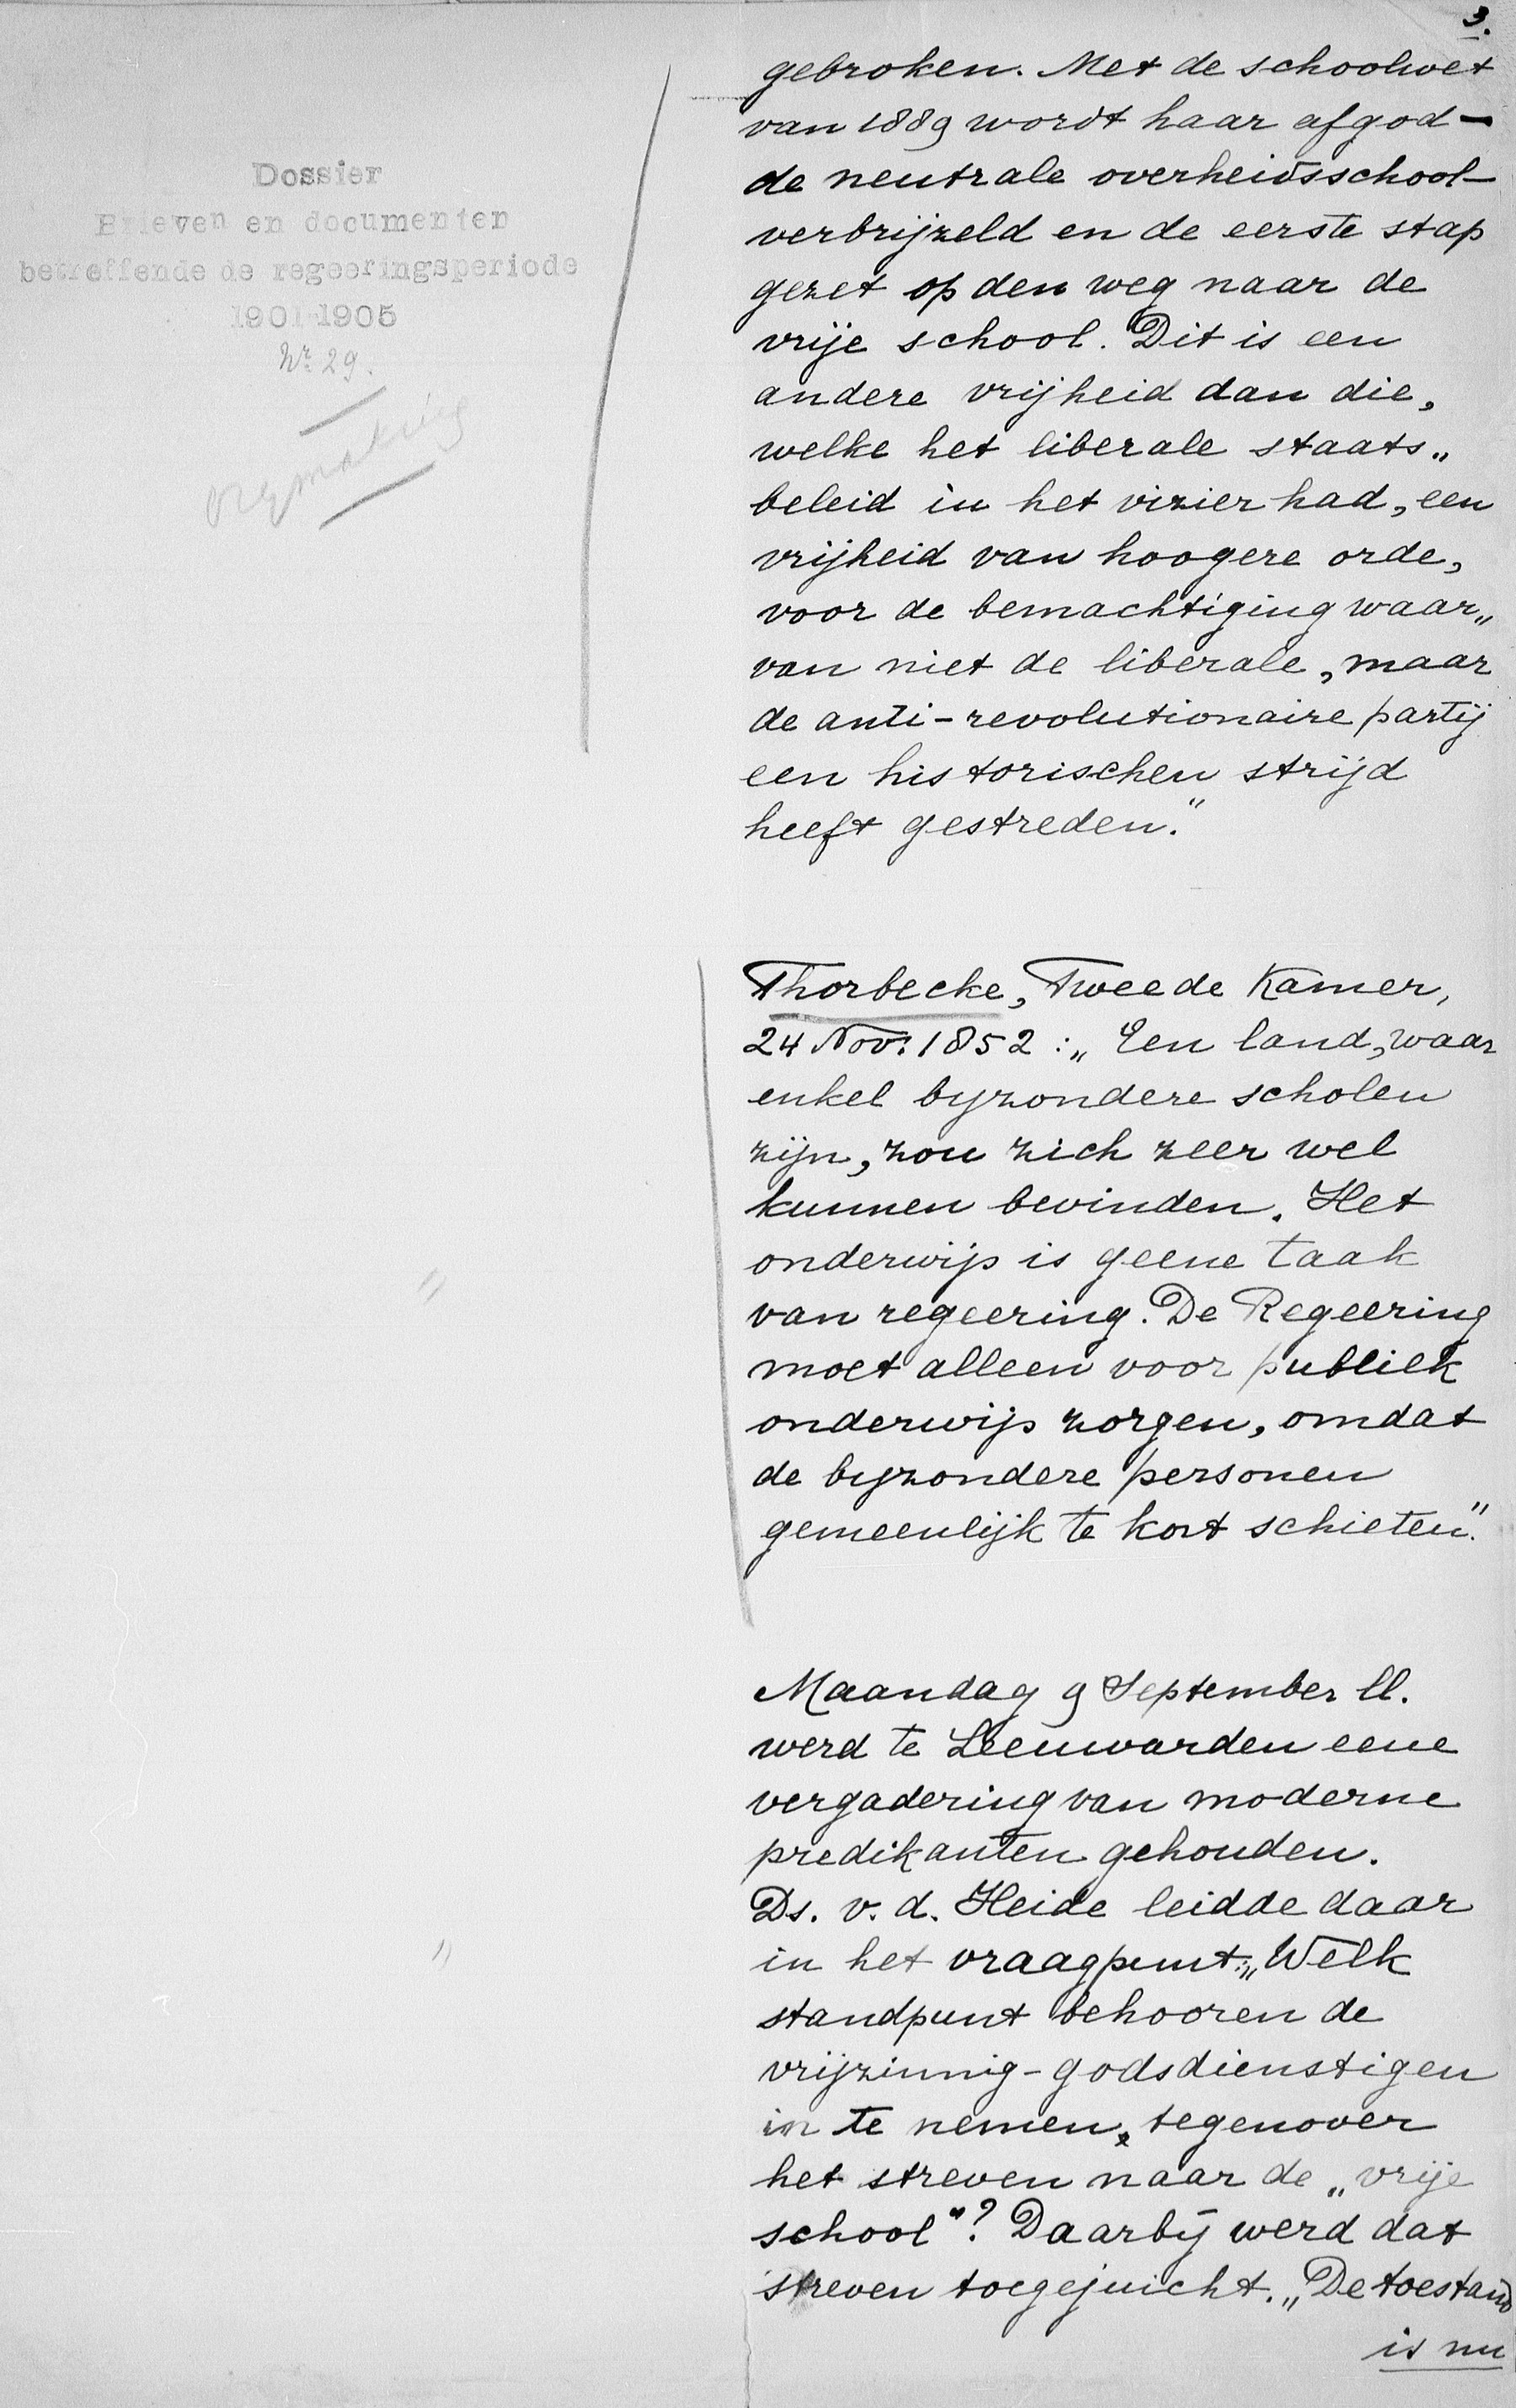 3.
gebroken. Met de schoolwet
van 1889 wordt haar afgod —
de neutrale overheidsschool —
verbrijzeld en de eerste stap
gezet op den weg naar de
vrije school. Dit is een
andere vrijheid dan die,
welke het liberale staats„
beleid in het vizier had, een
vrijheid van hoogere orde,
voor de bemachtiging waar„
van niet de liberale, maar
de anti-revolutionaire partij
een historischen strijd
heeft gestreden."
Dossier
Brieven en documenten
betreffende de regeeringsperiode
1901-1905
Nr. 29.
Thorbecke, Tweede Kamer,
24 Nov. 1852: „Een land, waar
enkel byzondere scholen
zijn, zou zich zeer wel
kunnen bevinden. Het
onderwijs is geene taak
van regeering. De Regeering
moet alleen voor publiek
onderwijs zorgen, omdat
de byzondere personen
gemeenlijk te kort schieten."
"
Maandag 9 September ll.
werd te Leeuwarden eene
vergadering van moderne
predikanten gehouden.
Ds. v. d. Heide leidde daar
in het vraagpunt: „Welk
standpunt behooren de
vrijzinnig-godsdienstigen
in te nemen, tegenover
het streven naar de „vrije
school"? Daarbij werd dat
streven toegejuicht. „De toestand
is nu
"